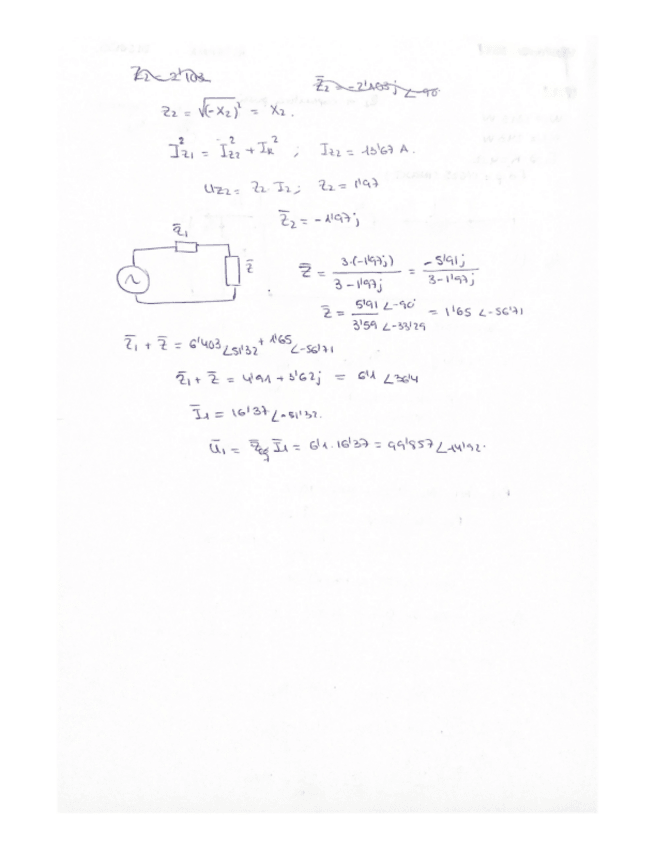 Z₂ = 2'103
Z̄₂ = -2'103j ∠-90
Z₂ = √(-X₂)² = X₂.
I²Z1 = I²Z2 + I_R² ; IZ2 = 13'67 A.
UZ2 = Z₂ I₂; Z₂ = 1'97
Z̄₂ = -1'97j
Z̄₁
Z̄
Z̄ = 3·(-1'97j) / 3 - 1'97j = -5'91j / 3 - 1'97j
Z̄ = 5'91 ∠-90 / 3'59 ∠-33'29 = 1'65 ∠-56'71
Z̄₁ + Z̄ = 6'403 ∠51'32 + 1'65 ∠-56'71
Z̄₁ + Z̄ = 4'91 + 3'62j = 6'1 ∠36'4
Ī₁ = 16'37 ∠-51'32.
Ū₁ = Z̄eq Ī₁ = 6'1 · 16'37 = 99'857 ∠-14'92.